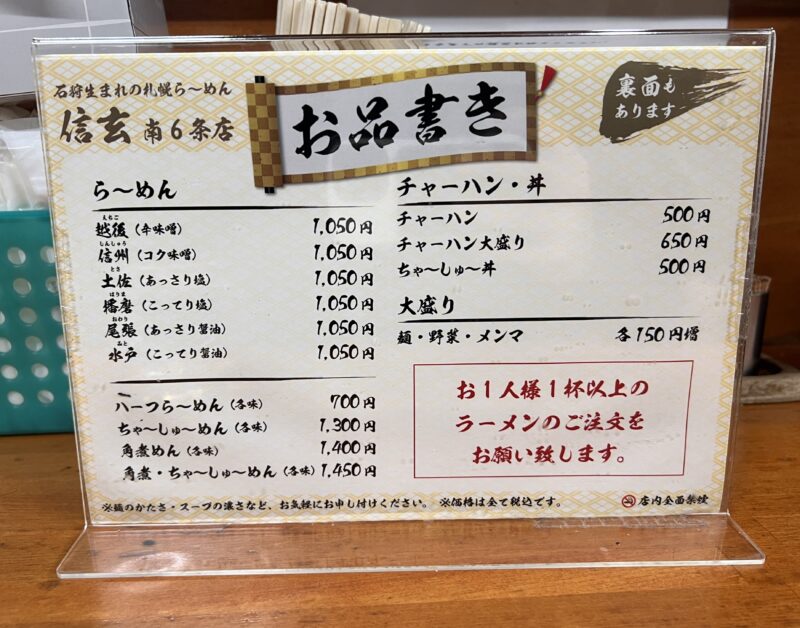 石狩生まれの札幌ら～めん
信玄 南6条店
お品書き
裏面も
あります
ら～めん
えちご
越後（辛味噌） 1,050円
しんしゅう
信州（コク味噌） 1,050円
とさ
土佐（あっさり塩） 1,050円
はりま
播磨（こってり塩） 1,050円
おわり
尾張（あっさり醤油） 1,050円
みと
水戸（こってり醤油） 1,050円
ハーフら～めん（各味） 700円
ちゃ～しゅ～めん（各味） 1,300円
角煮めん（各味） 1,400円
角煮・ちゃ～しゅ～めん（各味） 1,450円
チャーハン・丼
チャーハン 500円
チャーハン大盛り 650円
ちゃ～しゅ～丼 500円
大盛り
麺・野菜・メンマ 各150円増
お1人様1杯以上の
ラーメンのご注文を
お願い致します。
※麺のかたさ・スープの濃さなど、お気軽にお申し付けください。 ※価格は全て税込です。
店内全面禁煙